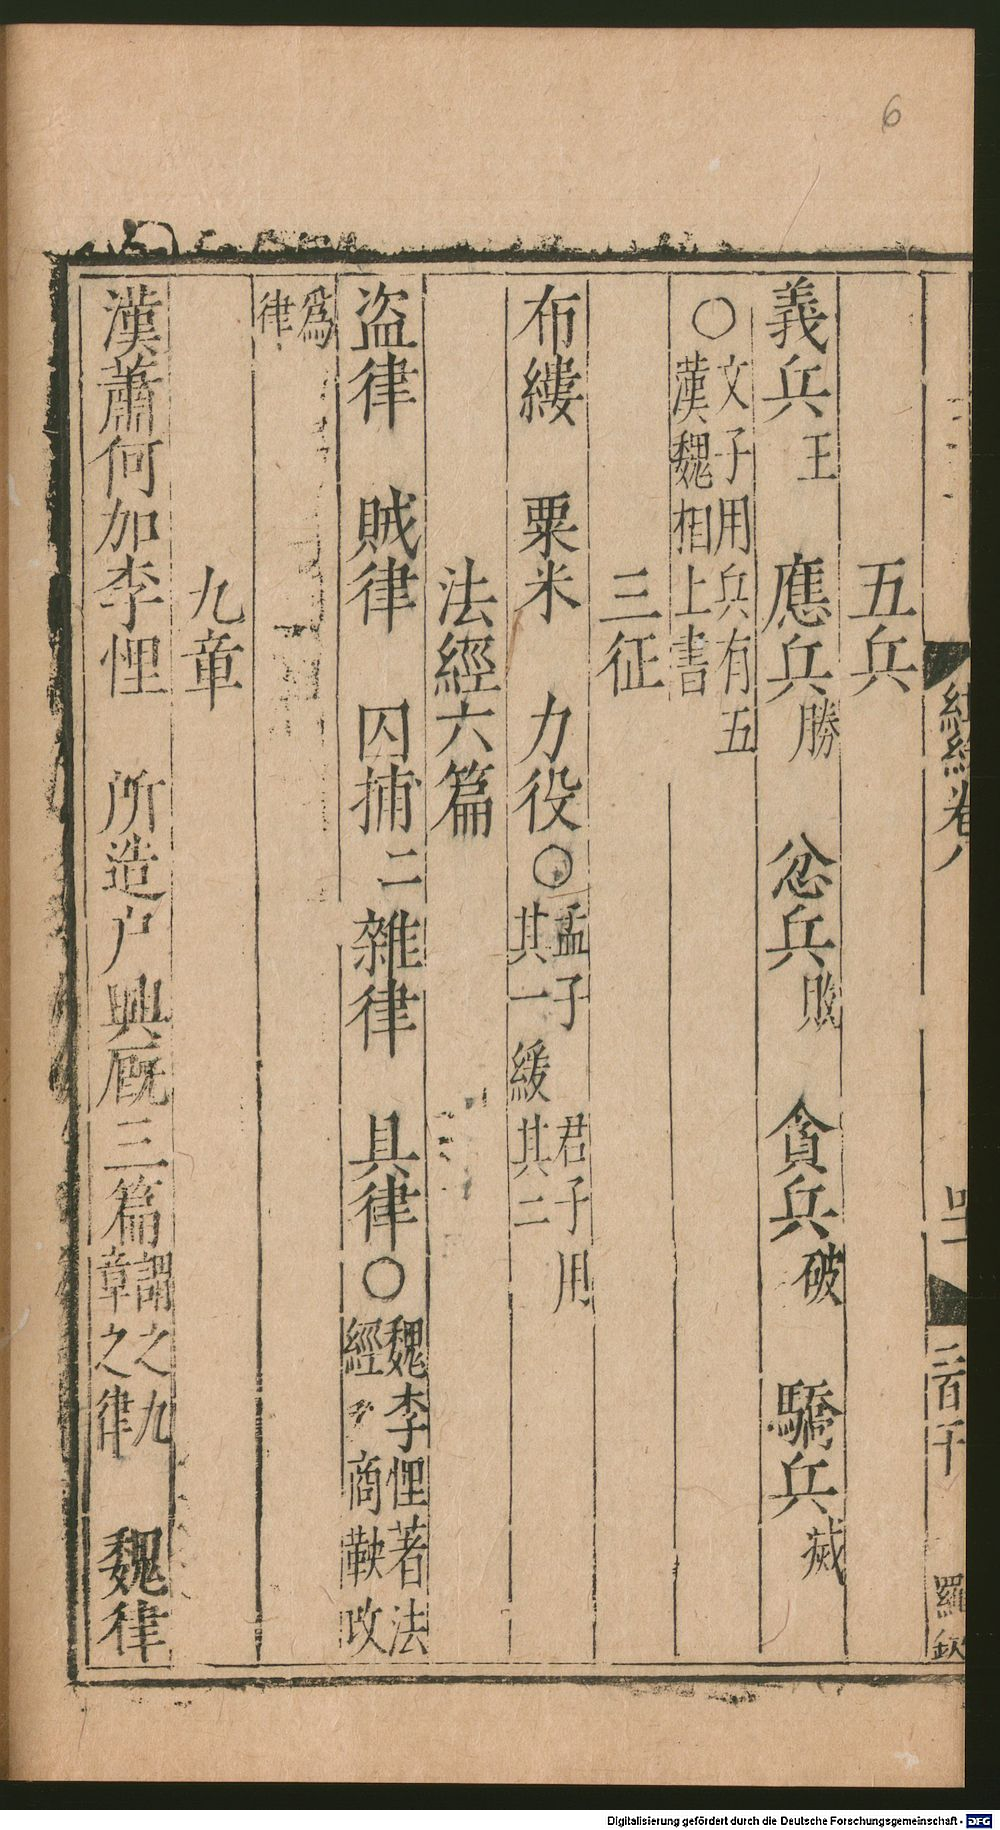 6
五兵
義兵王 應兵勝 忿兵敗 貪兵破 驕兵滅
○文子用兵有五
漢魏相上書
三征
布縷 粟米 力役○孟子 君子用
其一緩其二
法經六篇
盜律 賊律 囚捕二 雜律 具律○魏李悝著法
經 商鞅改
爲
律
九章
漢蕭何加李悝 所造户興厩三篇謂之九
章之律 魏律
卷八
三百
羅
Digitalisierung gefördert durch die Deutsche Forschungsgemeinschaft - DFG